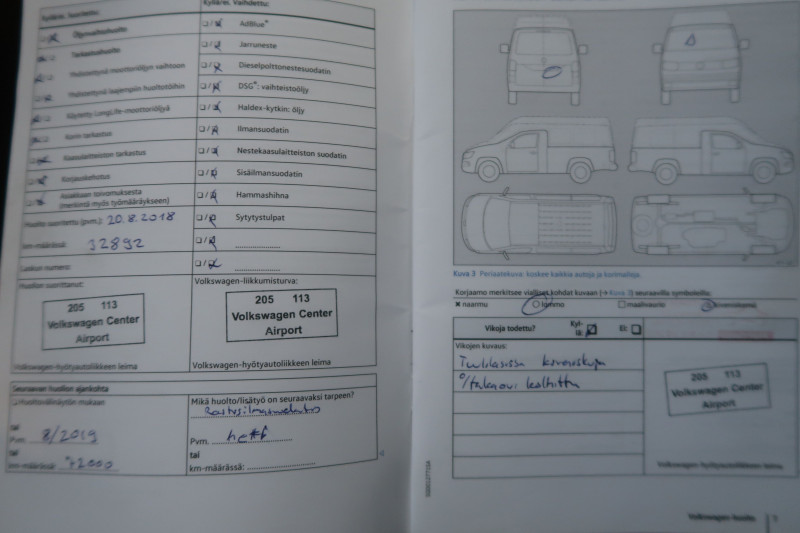 Kyllä/ei. Suoritettu:
Öljynvaihtohuolto
Tarkastushuolto
Yhdistettynä moottoriöljyn vaihtoon
Yhdistettynä laajempiin huoltotöihin
Käytetty LongLife-moottoriöljyä
Korin tarkastus
Kaasulaitteiston tarkastus
Korjauskehotus
Asiakkaan toivomuksesta
(merkintä myös työmääräykseen)
Huolto suoritettu (pvm.): 20.8.2018
km-määrässä: 32892
Laskun numero:
Huollon suorittanut:
205 113
Volkswagen Center
Airport
Volkswagen-hyötyautoliikkeen leima
Kyllä/ei. Vaihdettu:
AdBlue®
Jarruneste
Dieselpolttonestesuodatin
DSG®: vaihteistoöljy
Haldex-kytkin: öljy
Ilmansuodatin
Nestekaasulaitteiston suodatin
Sisäilmansuodatin
Hammashihna
Sytytystulpat
Volkswagen-liikkumisturva:
205 113
Volkswagen Center
Airport
Volkswagen-hyötyautoliikkeen leima
Seuraavan huollon ajankohta
Huoltovälinäytön mukaan
tai
Pvm. 8/2019
tai
km-määrässä: 72000
Mikä huolto/lisätyö on seuraavaksi tarpeen?
Pvm.
tai
km-määrässä:
Kuva 3 Periaatekuva: koskee kaikkia autoja ja korimalleja.
Korjaamo merkitsee vialliset kohdat kuvaan (→ Kuva 3) seuraavilla symboleilla:
naarmu lommo maalivaurio kiveniskemä
Vikoja todettu? Kyl-
lä: Ei:
Vikojen kuvaus:
Tuulilasissa kiveniskuja
takaovi kolhittu
205 113
Volkswagen Center
Airport
Volkswagen-hyötyautoliikkeen leima
Volkswagen-huolto